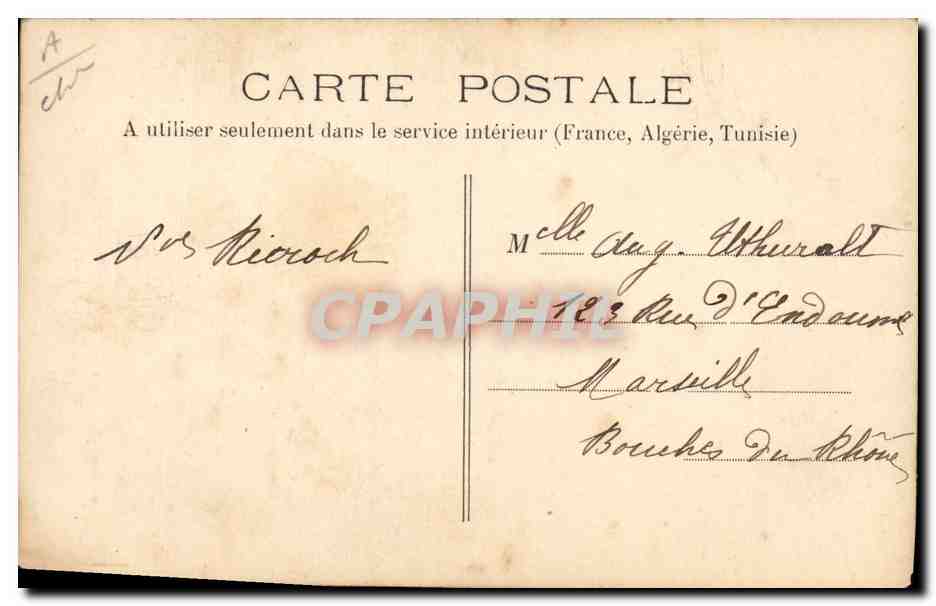 A
CARTE POSTALE
A utiliser seulement dans le service intérieur (France, Algérie, Tunisie)
Ricroch
Melle Aug. Uthuralt
123 Rue d'Endoume
Marseille
Bouches du Rhône
CPAPHIL